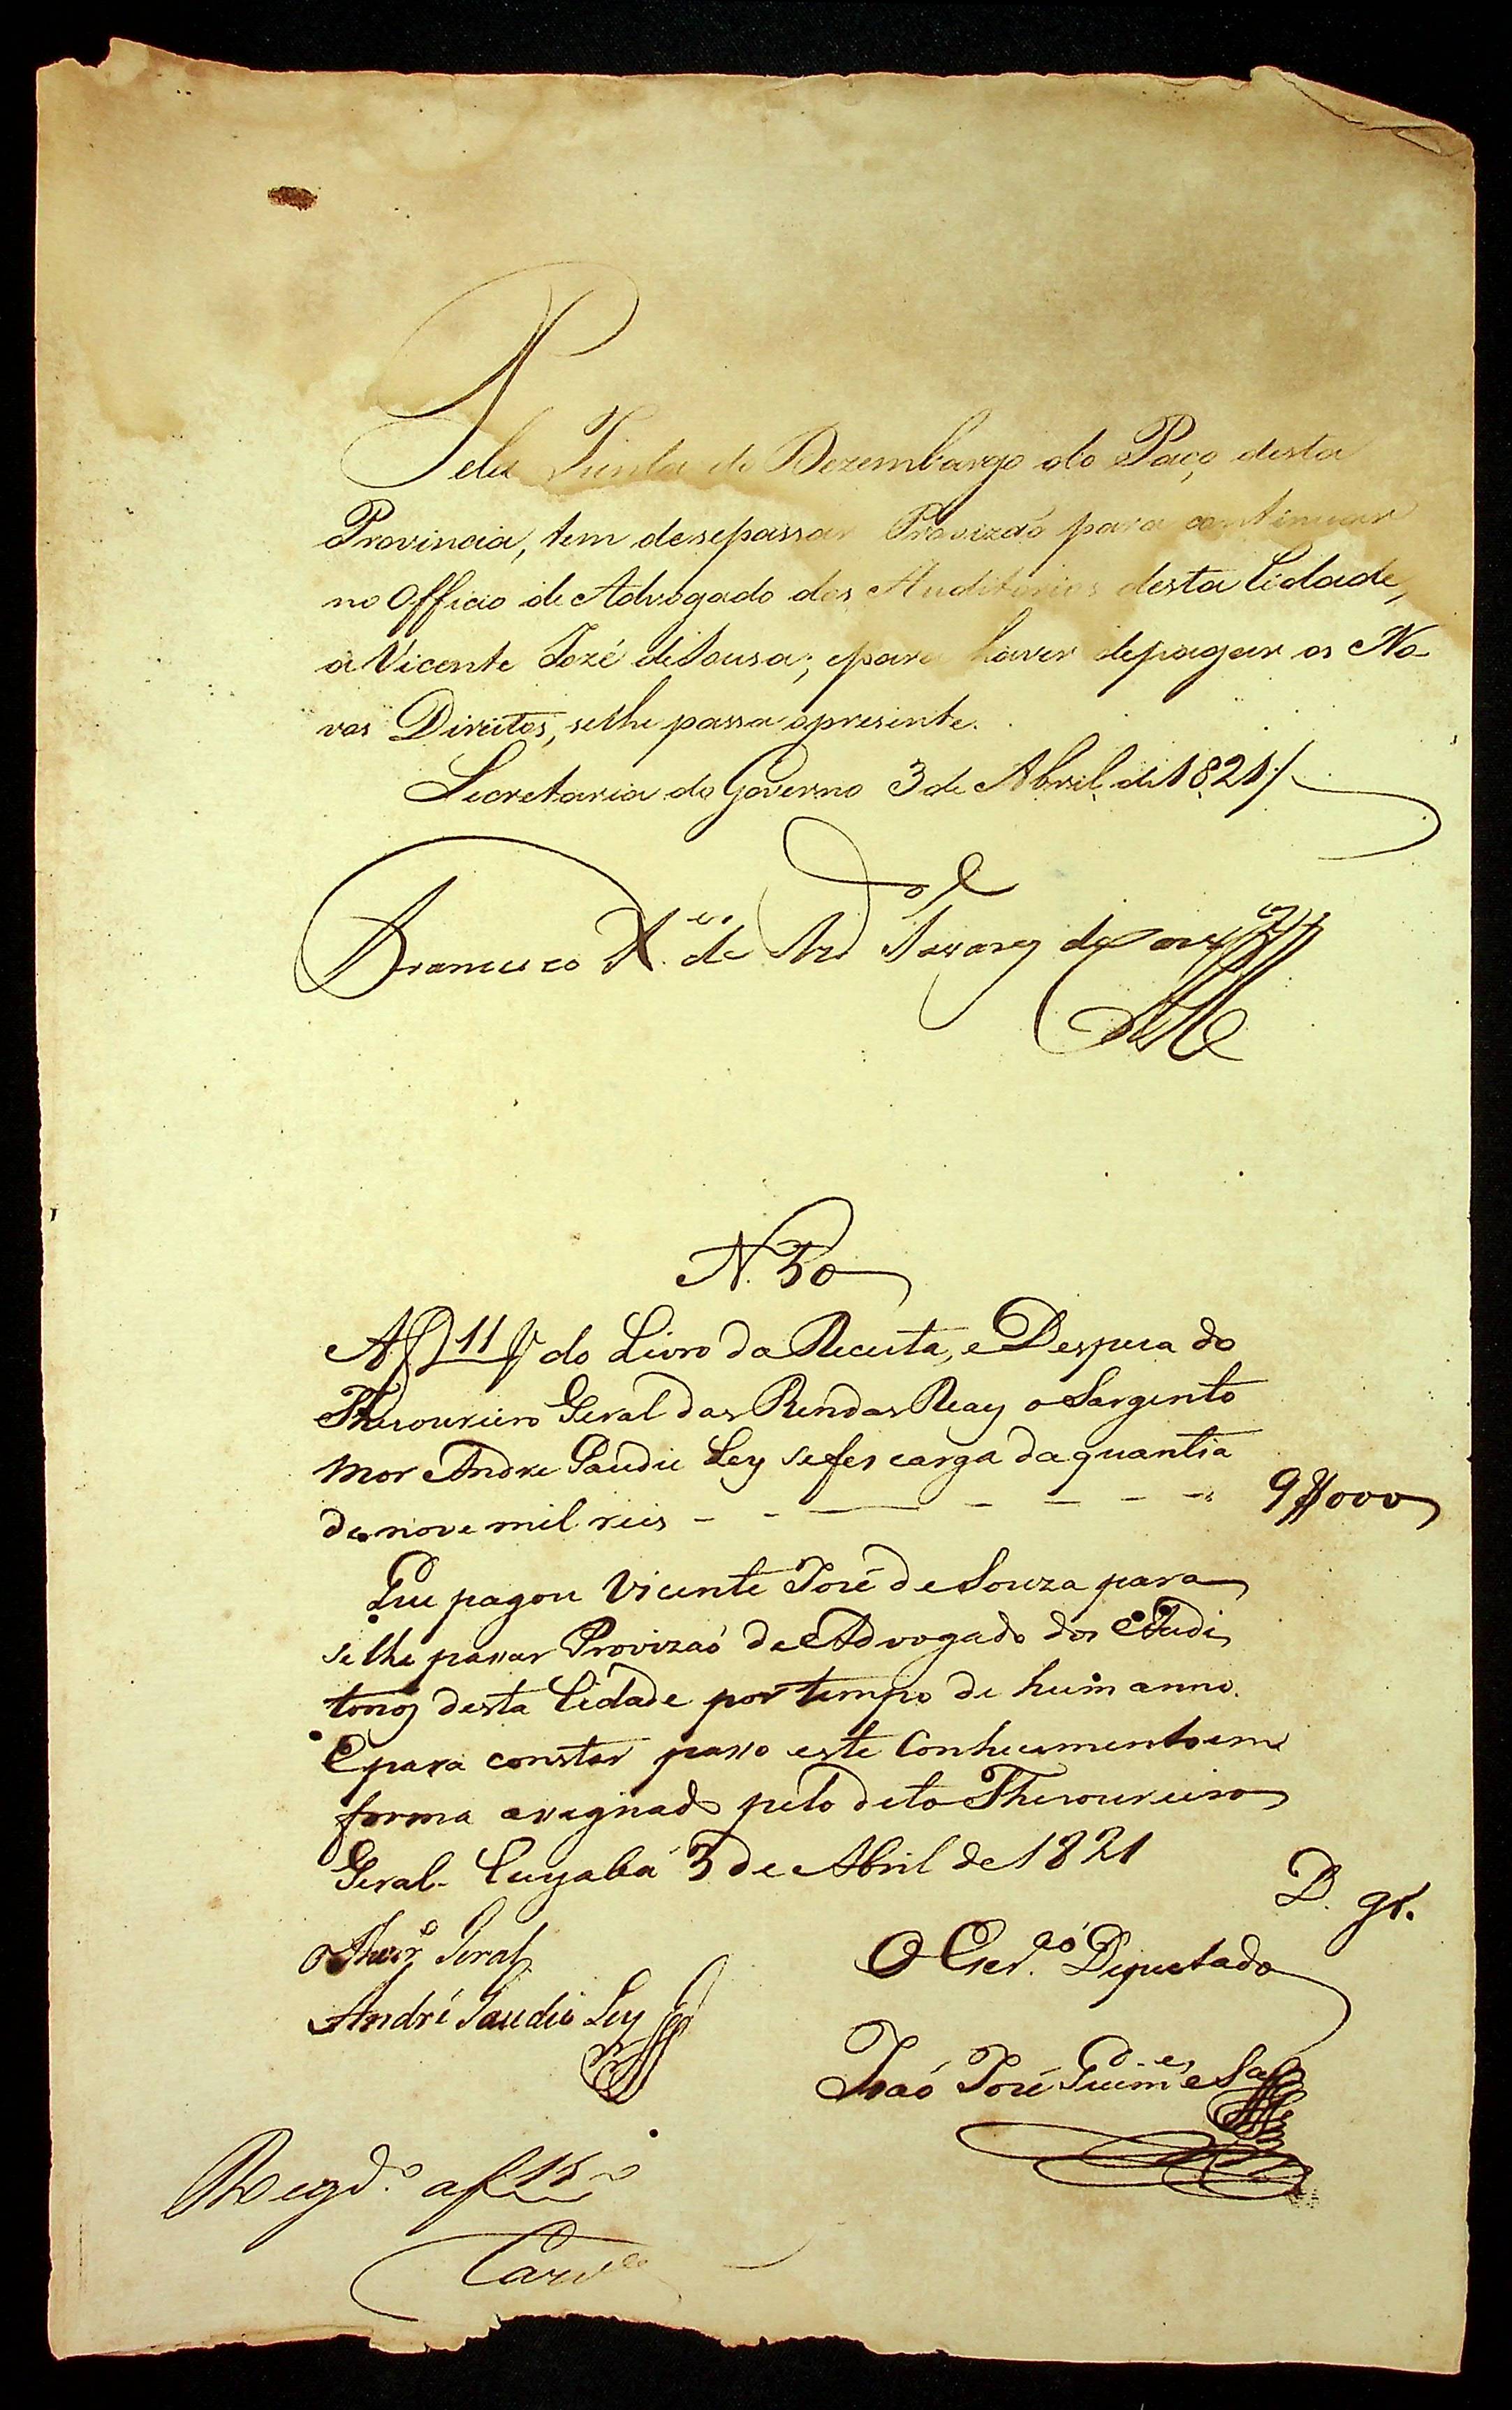 Pela Junta do Dezembargo do Paço desta
Provincia, tem desepassar Provizaõ para continuar
no Officio de Advogado dos Auditorios desta Cidade,
a Vicente Jozé deSousa; epara haver depagar os No-
vos Direitos, selhe passa apresente.
Secretaria do Governo 3 de Abril de 1821/
Francisco X.er de
N. 50
Af 11 do Livro da Receita, e Despeza do
Thezoureiro Geral das Rendas Reaes o Sargento
mor Andre Gaudie Ley sefes carga da quantia
de nove mil reis - - - - - - - 9$000
Que pagou Vicente José de Souza para
selhe passar Provizaõ de Advogado dos Audi
torios desta Cidade por tempo de hum anno.
E para constar passo este Conhecimento em
forma assignado pelo dito Thezoureiro
Geral. Cuyabá 3 de Abril de 1821
D. gr.
O Thezr.o Geral
André Gaudie Ley
O Escr.ão Deputado
Joaõ José Guim.es e Sa
Regd.o af 15
Carv.o